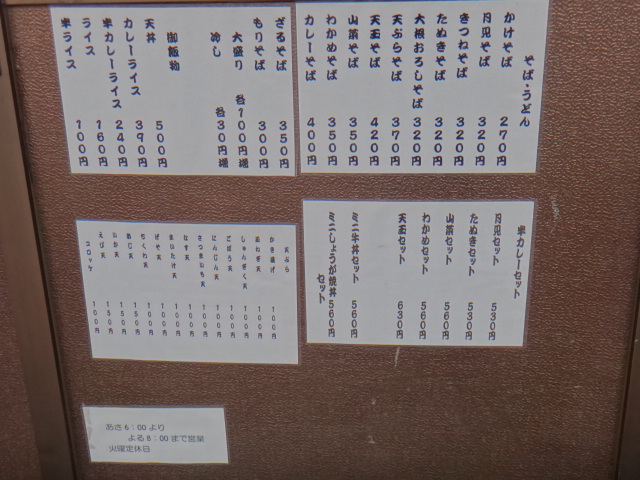 そば・うどん
かけそば 270円
月見そば 320円
きつねそば 320円
たぬきそば 320円
大根おろしそば 320円
天ぷらそば 370円
天玉そば 420円
山菜そば 350円
わかめそば 350円
カレーそば 400円
ざるそば 350円
もりそば 300円
大盛り 各100円増
冷し 各30円増
御飯物
天丼 500円
カレーライス 390円
半カレーライス 240円
ライス 160円
半ライス 100円
半カレーセット
月見セット 530円
たぬきセット 530円
山菜セット 560円
わかめセット 560円
天玉セット 630円
ミニ牛丼セット 560円
ミニしょうが焼丼セット 560円
天ぷら
かき揚げ 100円
玉ねぎ天 100円
しゅんぎく天 100円
ごぼう天 100円
にんじん天 100円
さつまいも天 100円
なす天 100円
まいたけ天 100円
げそ天 100円
ちくわ天 100円
あじ天 150円
いか天 150円
えび天 150円
コロッケ 100円
あさ6：00より
よる8：00まで営業
火曜定休日